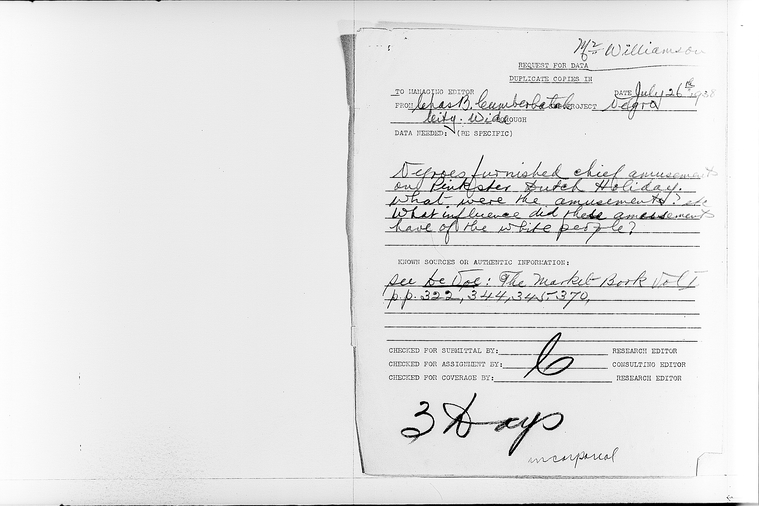 Mr Williamson
REQUEST FOR DATA
DUPLICATE COPIES IN
TO MANAGING EDITOR DATE July 26th 1938
FROM Chas B. Cumberbatch PROJECT Negro
City. Wide BOROUGH
DATA NEEDED: (BE SPECIFIC)
Negroes furnished chief amusements
on Pinkster Dutch Holiday.
What were the amusements? etc
What influence did these amusements
have of the white people?
KNOWN SOURCES OR AUTHENTIC INFORMATION:
see De Voe: The Market Book Vol I
p.p. 322, 344, 345-370,
CHECKED FOR SUBMITTAL BY: RESEARCH EDITOR
CHECKED FOR ASSIGNMENT BY: CONSULTING EDITOR
CHECKED FOR COVERAGE BY: RESEARCH EDITOR
3 Days